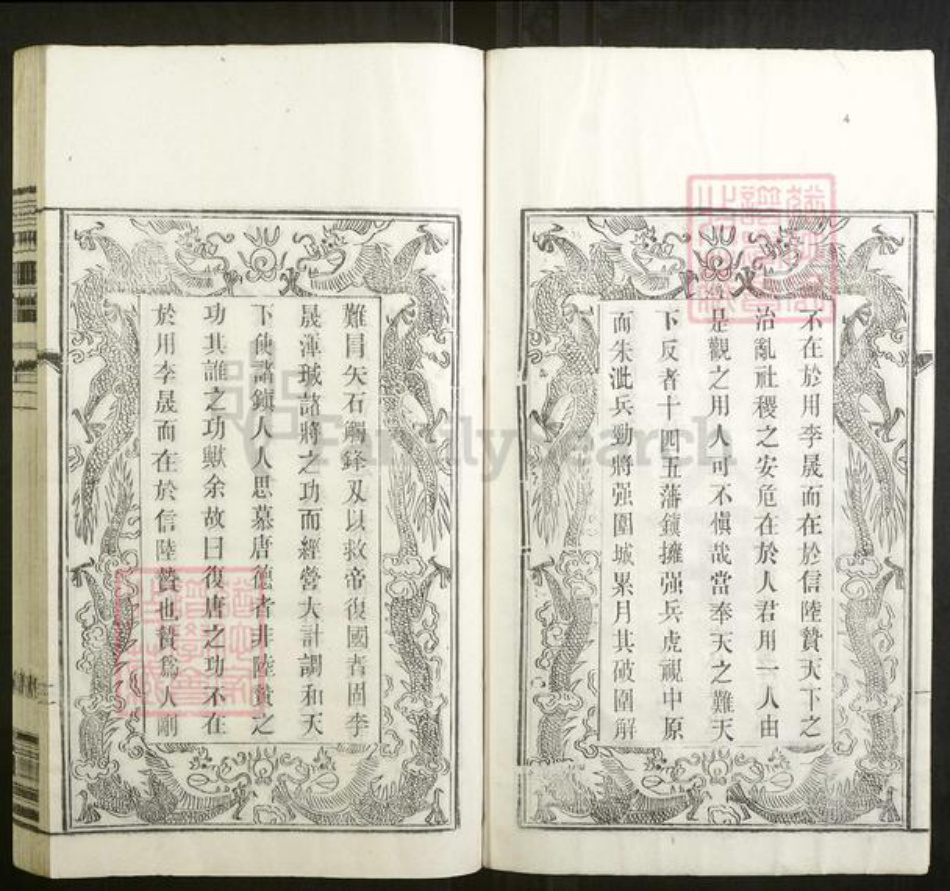 不在於用李晟而在於信陸贄天下之
治亂社稷之安危在於人君用一人由
是觀之用人可不愼哉當奉天之難天
下反者十四五藩鎮擁强兵虎視中原
而朱泚兵勁將强圍城累月其破圍解
難冒矢石觸鋒刃以救帝復國者固李
晟渾瑊諸將之功而經營大計調和天
下使諸鎭人人思慕唐德者非陸贄之
功其誰之功歟余故曰復唐之功不在
於用李晟而在於信陸贄也贄爲人剛
4
FamilySearch